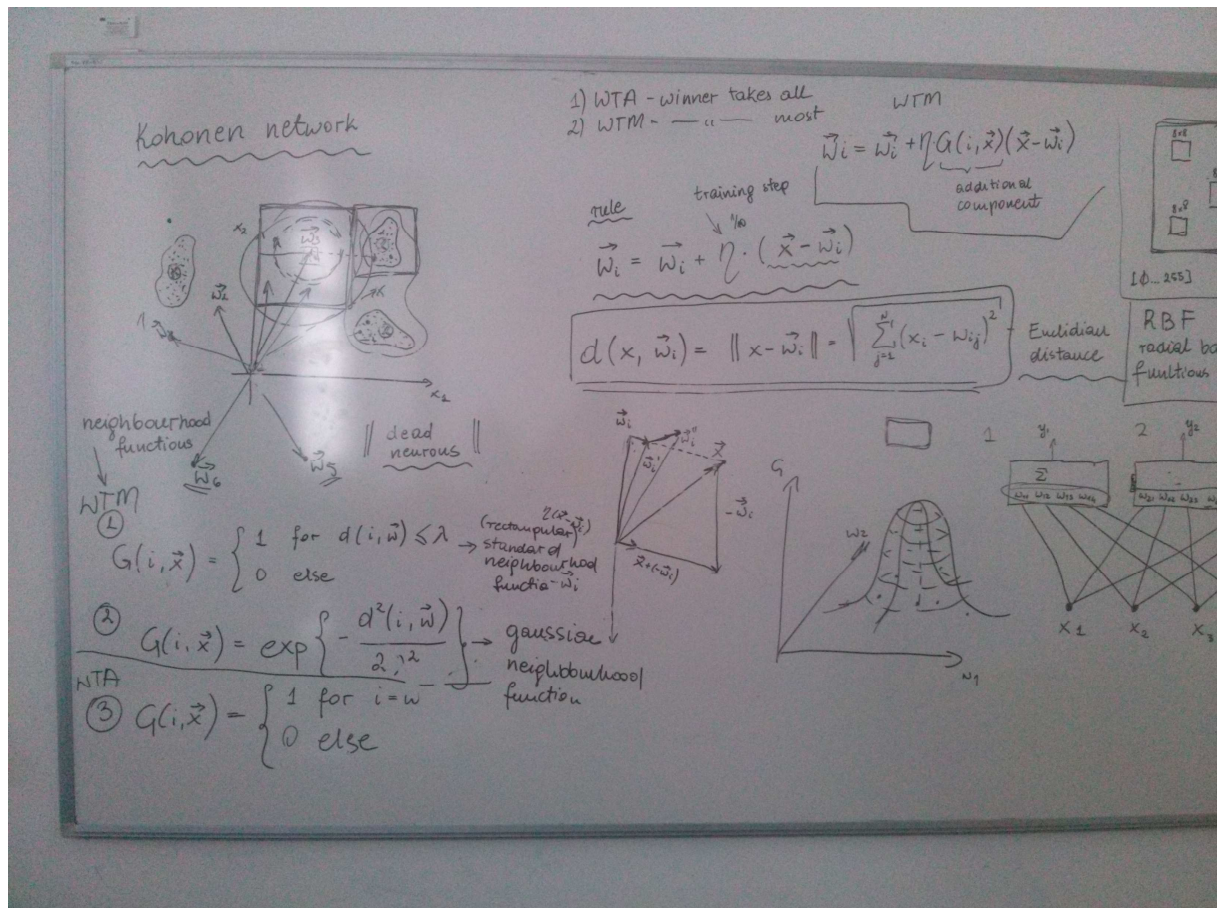 Kohonen network
x₂
w⃗₁
x
x₁
neighbourhood
functions
w⃗₆
w⃗₅
dead
neurous
WTM
①
G(i,x⃗) = { 1 for d(i,w⃗) ≤ λ
0 else
→ (rectangular)
standard
neighbourhood
functio
②
G(i,x⃗) = exp{ - d²(i,w⃗) / 2λ² } → gaussian
neighbourhood
function
WTA
③ G(i,x⃗) = { 1 for i = w
0 else
1) WTA - winner takes all
2) WTM - — " — most
WTM
w⃗i = w⃗i + η G(i,x⃗)(x⃗ - w⃗i)
additional
component
rule
training step
w⃗i = w⃗i + η · (x⃗ - w⃗i)
d(x, w⃗i) = || x - w⃗i || = √ Σ j=1 N (xi - wij)²
Euclidian
distance
w⃗i
w⃗i'
w⃗i''
x⃗
η(x⃗-w⃗i)
-w⃗i
x⃗+(-w⃗i)
-w⃗i
G
w₂
w₁
8x8
8x8
[0...255]
RBF
radial ba
funltious
1 y₁
2 y₂
Σ
w₁₁ w₁₂ w₁₃ w₁₄
w₂₁ w₂₂ w₂₃
x1 x2 x3